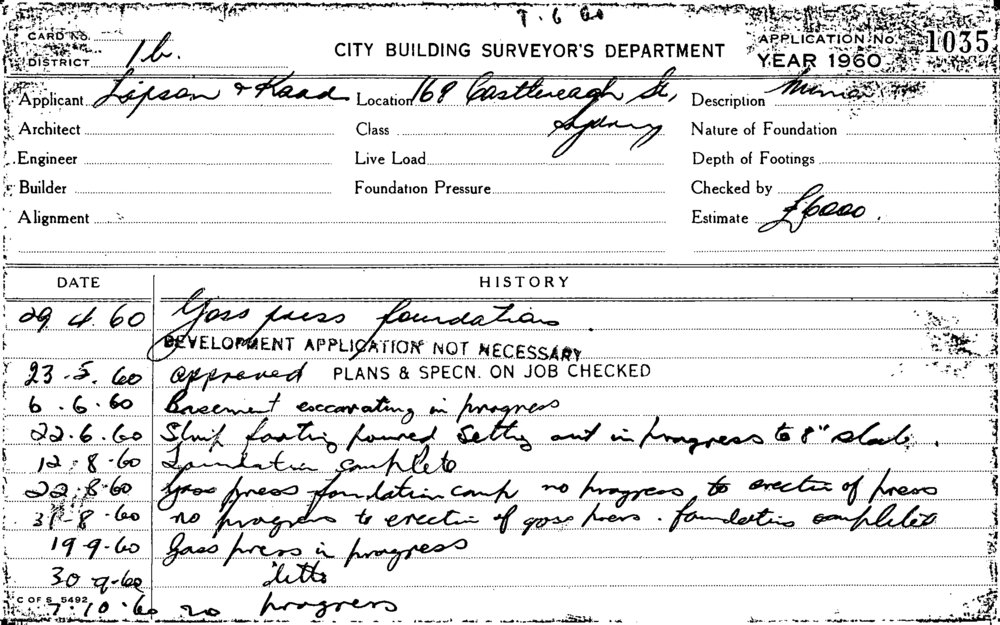 7.6.60
CARD No.
DISTRICT 1b.
CITY BUILDING SURVEYOR'S DEPARTMENT
APPLICATION No. 1035
YEAR 1960
Applicant Lipson & Kaad Location 168 Castlereagh St, Description Minor
Architect Class Sydney Nature of Foundation
Engineer Live Load Depth of Footings
Builder Foundation Pressure Checked by
Alignment Estimate £6000.
DATE HISTORY
29.4.60 Goss press foundations.
DEVELOPMENT APPLICATION NOT NECESSARY
23.5.60 approved PLANS & SPECN. ON JOB CHECKED
6.6.60 Basement excavating in progress
22.6.60 Strip footing poured Setting out in progress to 8" slab.
12.8.60 Foundation complete
22.8.60 Goss press foundation comp no progress to erection of press
31-8-60 no progress to erection of goss press. foundations complete
19-9-60 Goss press in progress
30-9-60 ditto
C OF S 5492
7.10.60 no progress